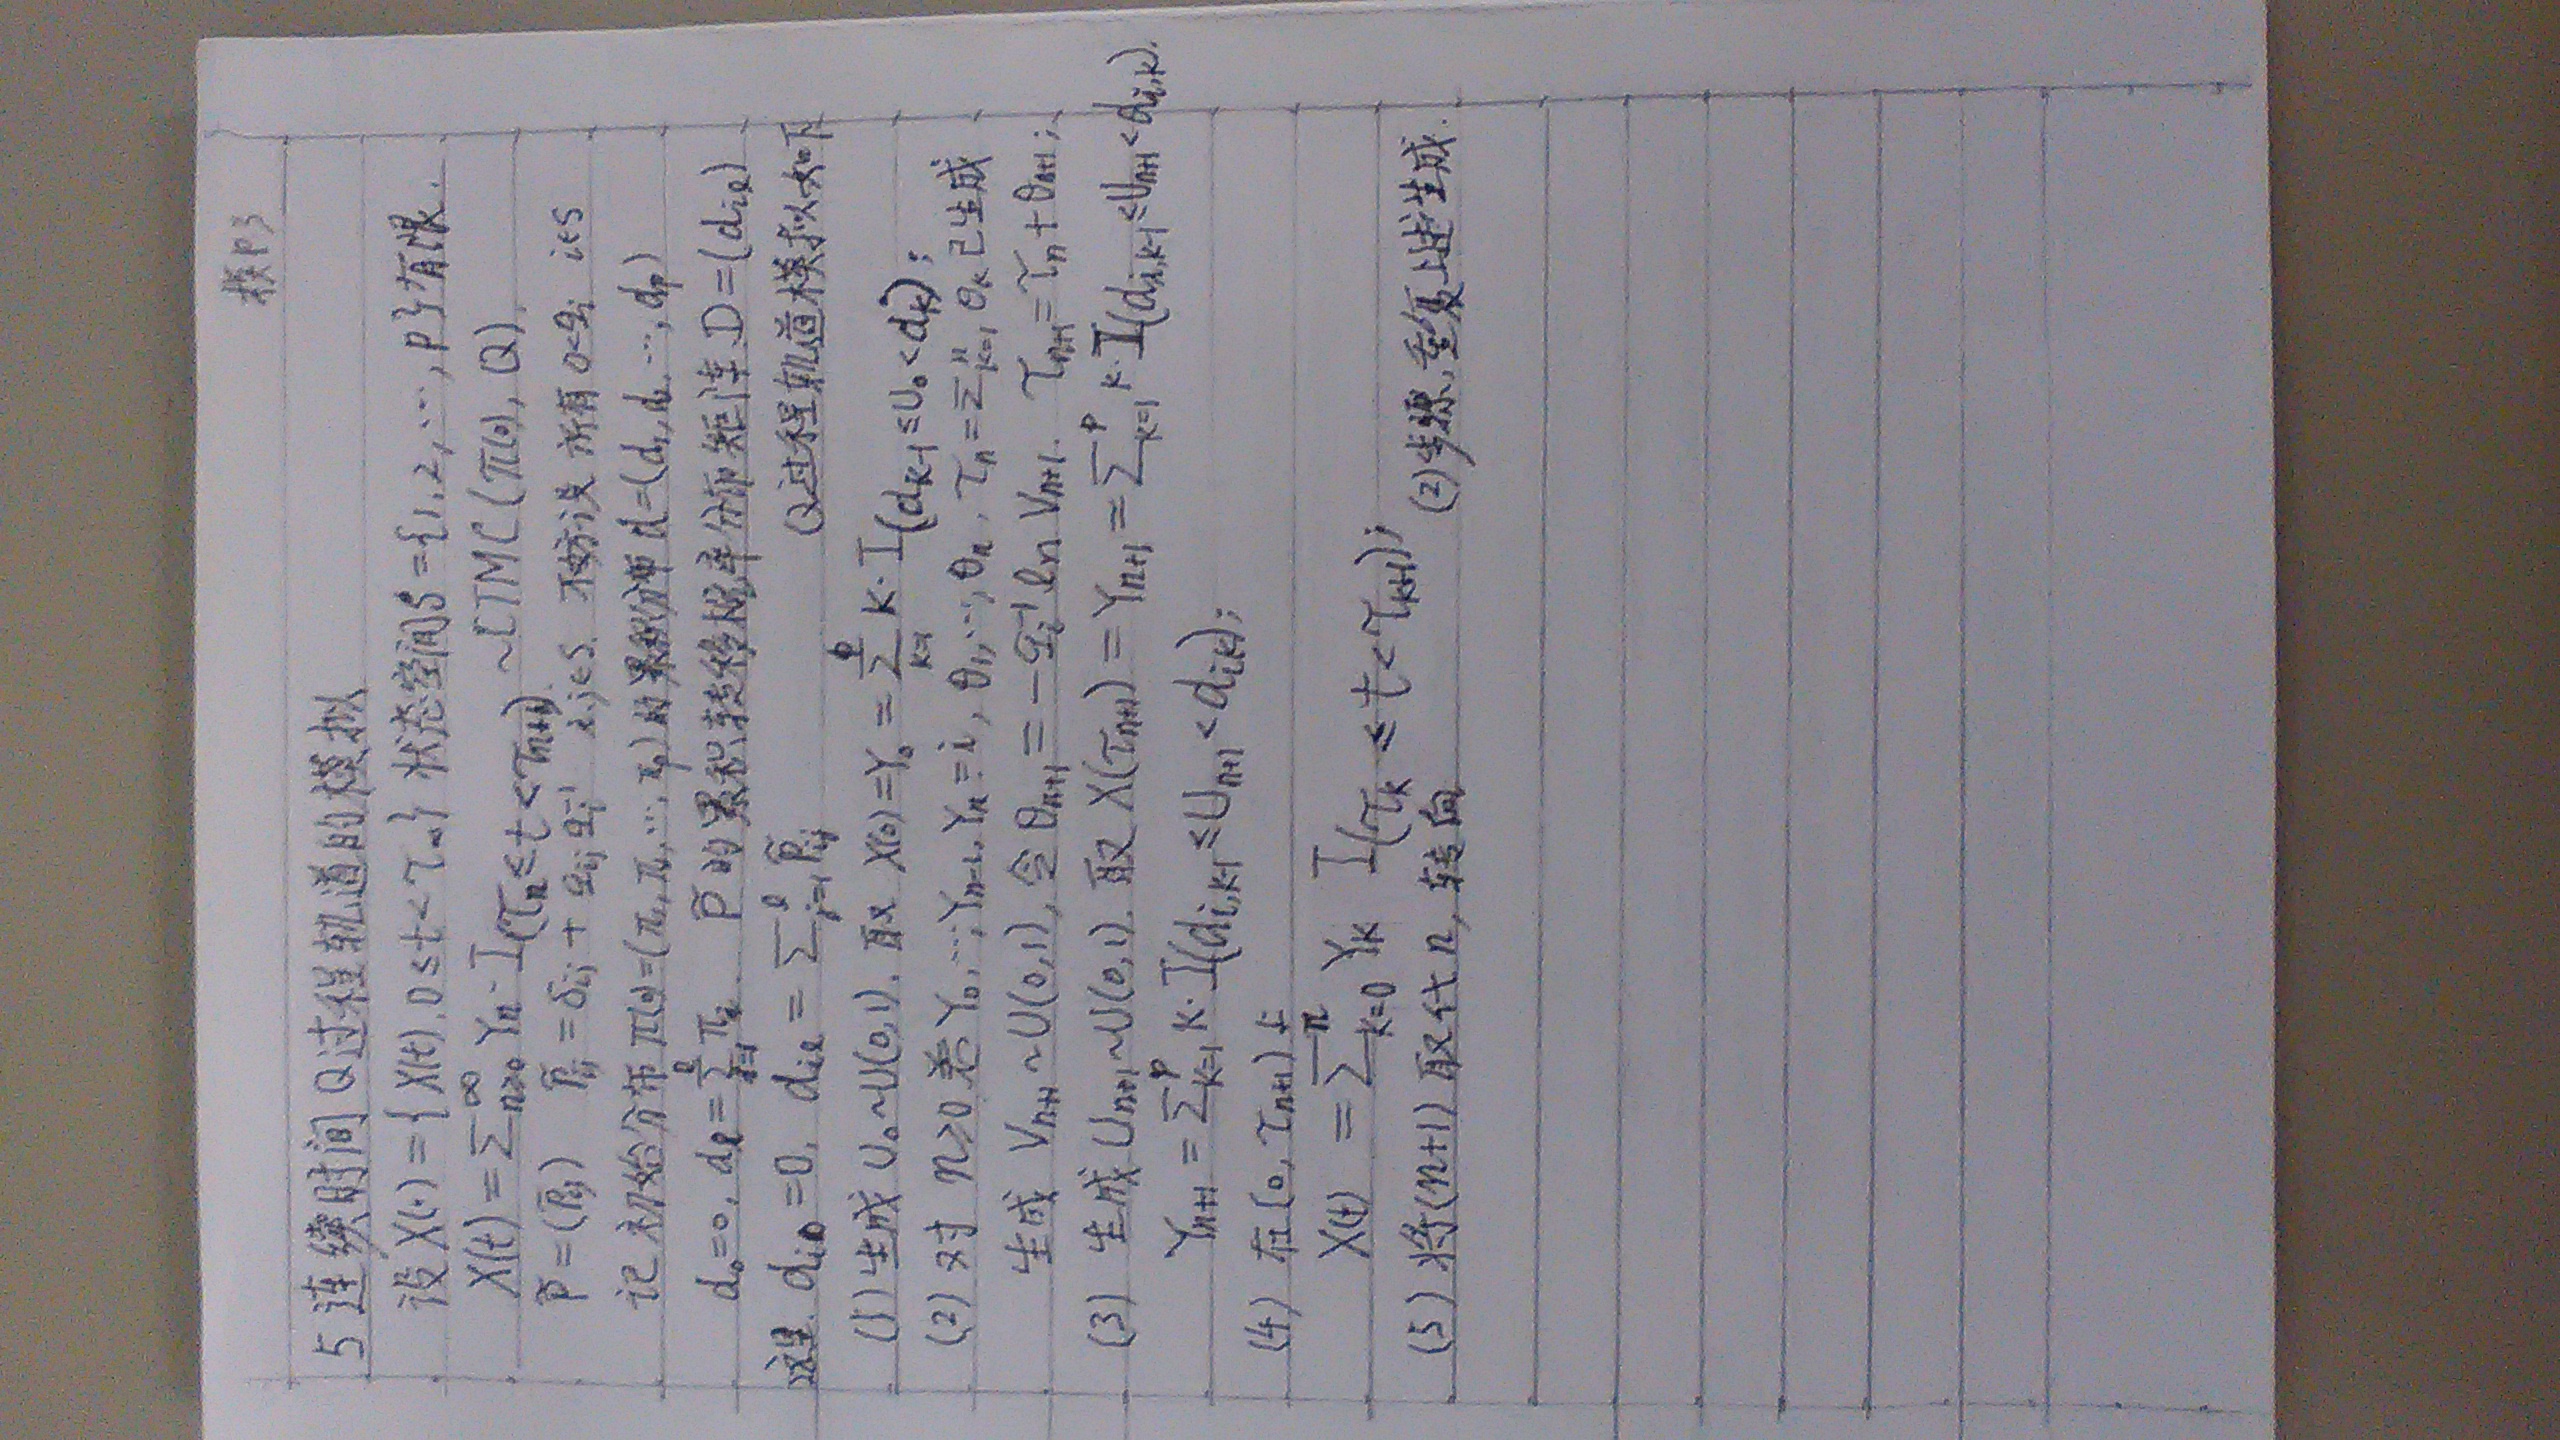 模P3
5 连续时间Q过程轨道的模拟
设X(·)={X(t), 0≤t<τ∞} 状态空间S={1,2,…,p}有限.
X(t)=∑_{n≥0}^∞ Yn·I(τn≤t<τn+1) ~CTMC(π(0), Q).
P̄=(P̄ij) P̄ij=δij+qij qi⁻¹ i,j∈S. 不妨设所有0<qi i∈S
记初始分布π(0)=(π1,π2,…,πp)的累积分布d=(d1,d2,…,dp)
d0=0, dl=∑_{k=1}^l πk. P̄的累积转移概率分布矩阵D=(dil)
这里 di0=0, dil=∑_{j=1}^l P̄ij Q过程轨道模拟如下
(1)生成U0~U(0,1). 取X(0)=Y0=∑_{k=1}^p k·I(dk-1≤U0<dk);
(2)对n≥0若Y0,…,Yn-1,Yn=i,θ1,…,θn, τn=∑_{k=1}^n θk已生成
生成Vn+1~U(0,1), 令θn+1=-qi⁻¹ln Vn+1. τn+1=τn+θn+1;
(3) 生成Un+1~U(0,1). 取X(τn+1)=Yn+1=∑_{k=1}^p k·I(di,k-1≤Un+1<di,k).
Yn+1=∑_{k=1}^p k·I(di,k-1≤Un+1<dik);
(4) 在[0,τn+1)上
X(t)=∑_{k=0}^n Yk I(τk≤t<τk+1);
(5)将(n+1)取代n, 转向 (2)步骤,重复上述生成.